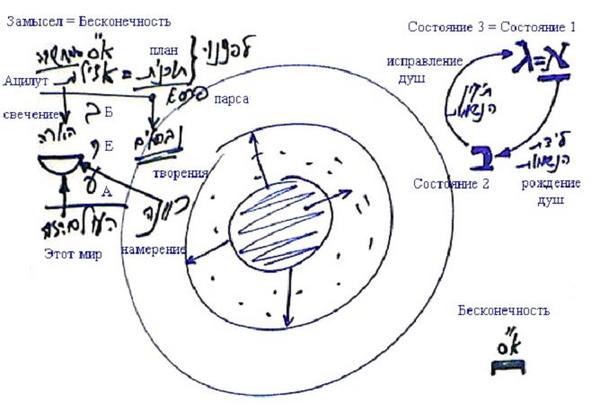 Замысел = Бесконечность
א"ס
план
לפני
Ацилут
תוכנית = אצילות
פרסא
парса
свечение
ב Б
הארה
י Е
творения
ע А
כוונה
העולם הזה
Этот мир
намерение
Состояние 3 = Состояние 1
исправление
душ
ג = א
תיקון
הנשמות
ב
Состояние 2
לידת
הנשמות
рождение
душ
Бесконечность
א"ס